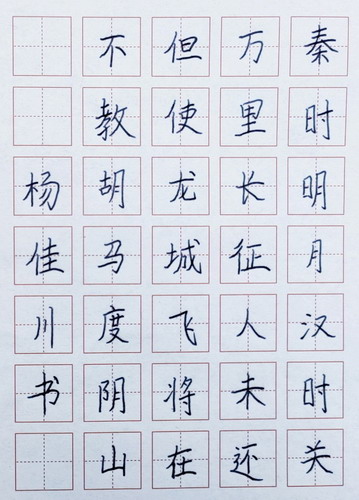 秦时明月汉时关
万里长征人未还
但使龙城飞将在
不教胡马度阴山
杨佳川书